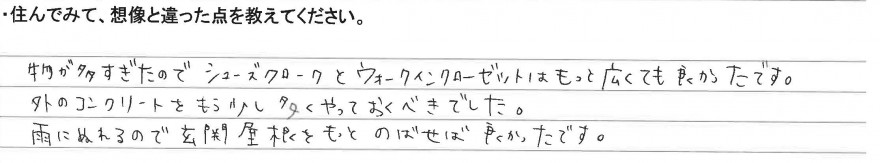 ・住んでみて、想像と違った点を教えてください。
物が多すぎたので シューズクロークと ウォークインクローゼットはもっと広くても良かったです。
外のコンクリートをもう少し多くやっておくべきでした。
雨にぬれるので玄関屋根をもっとのばせば良かったです。